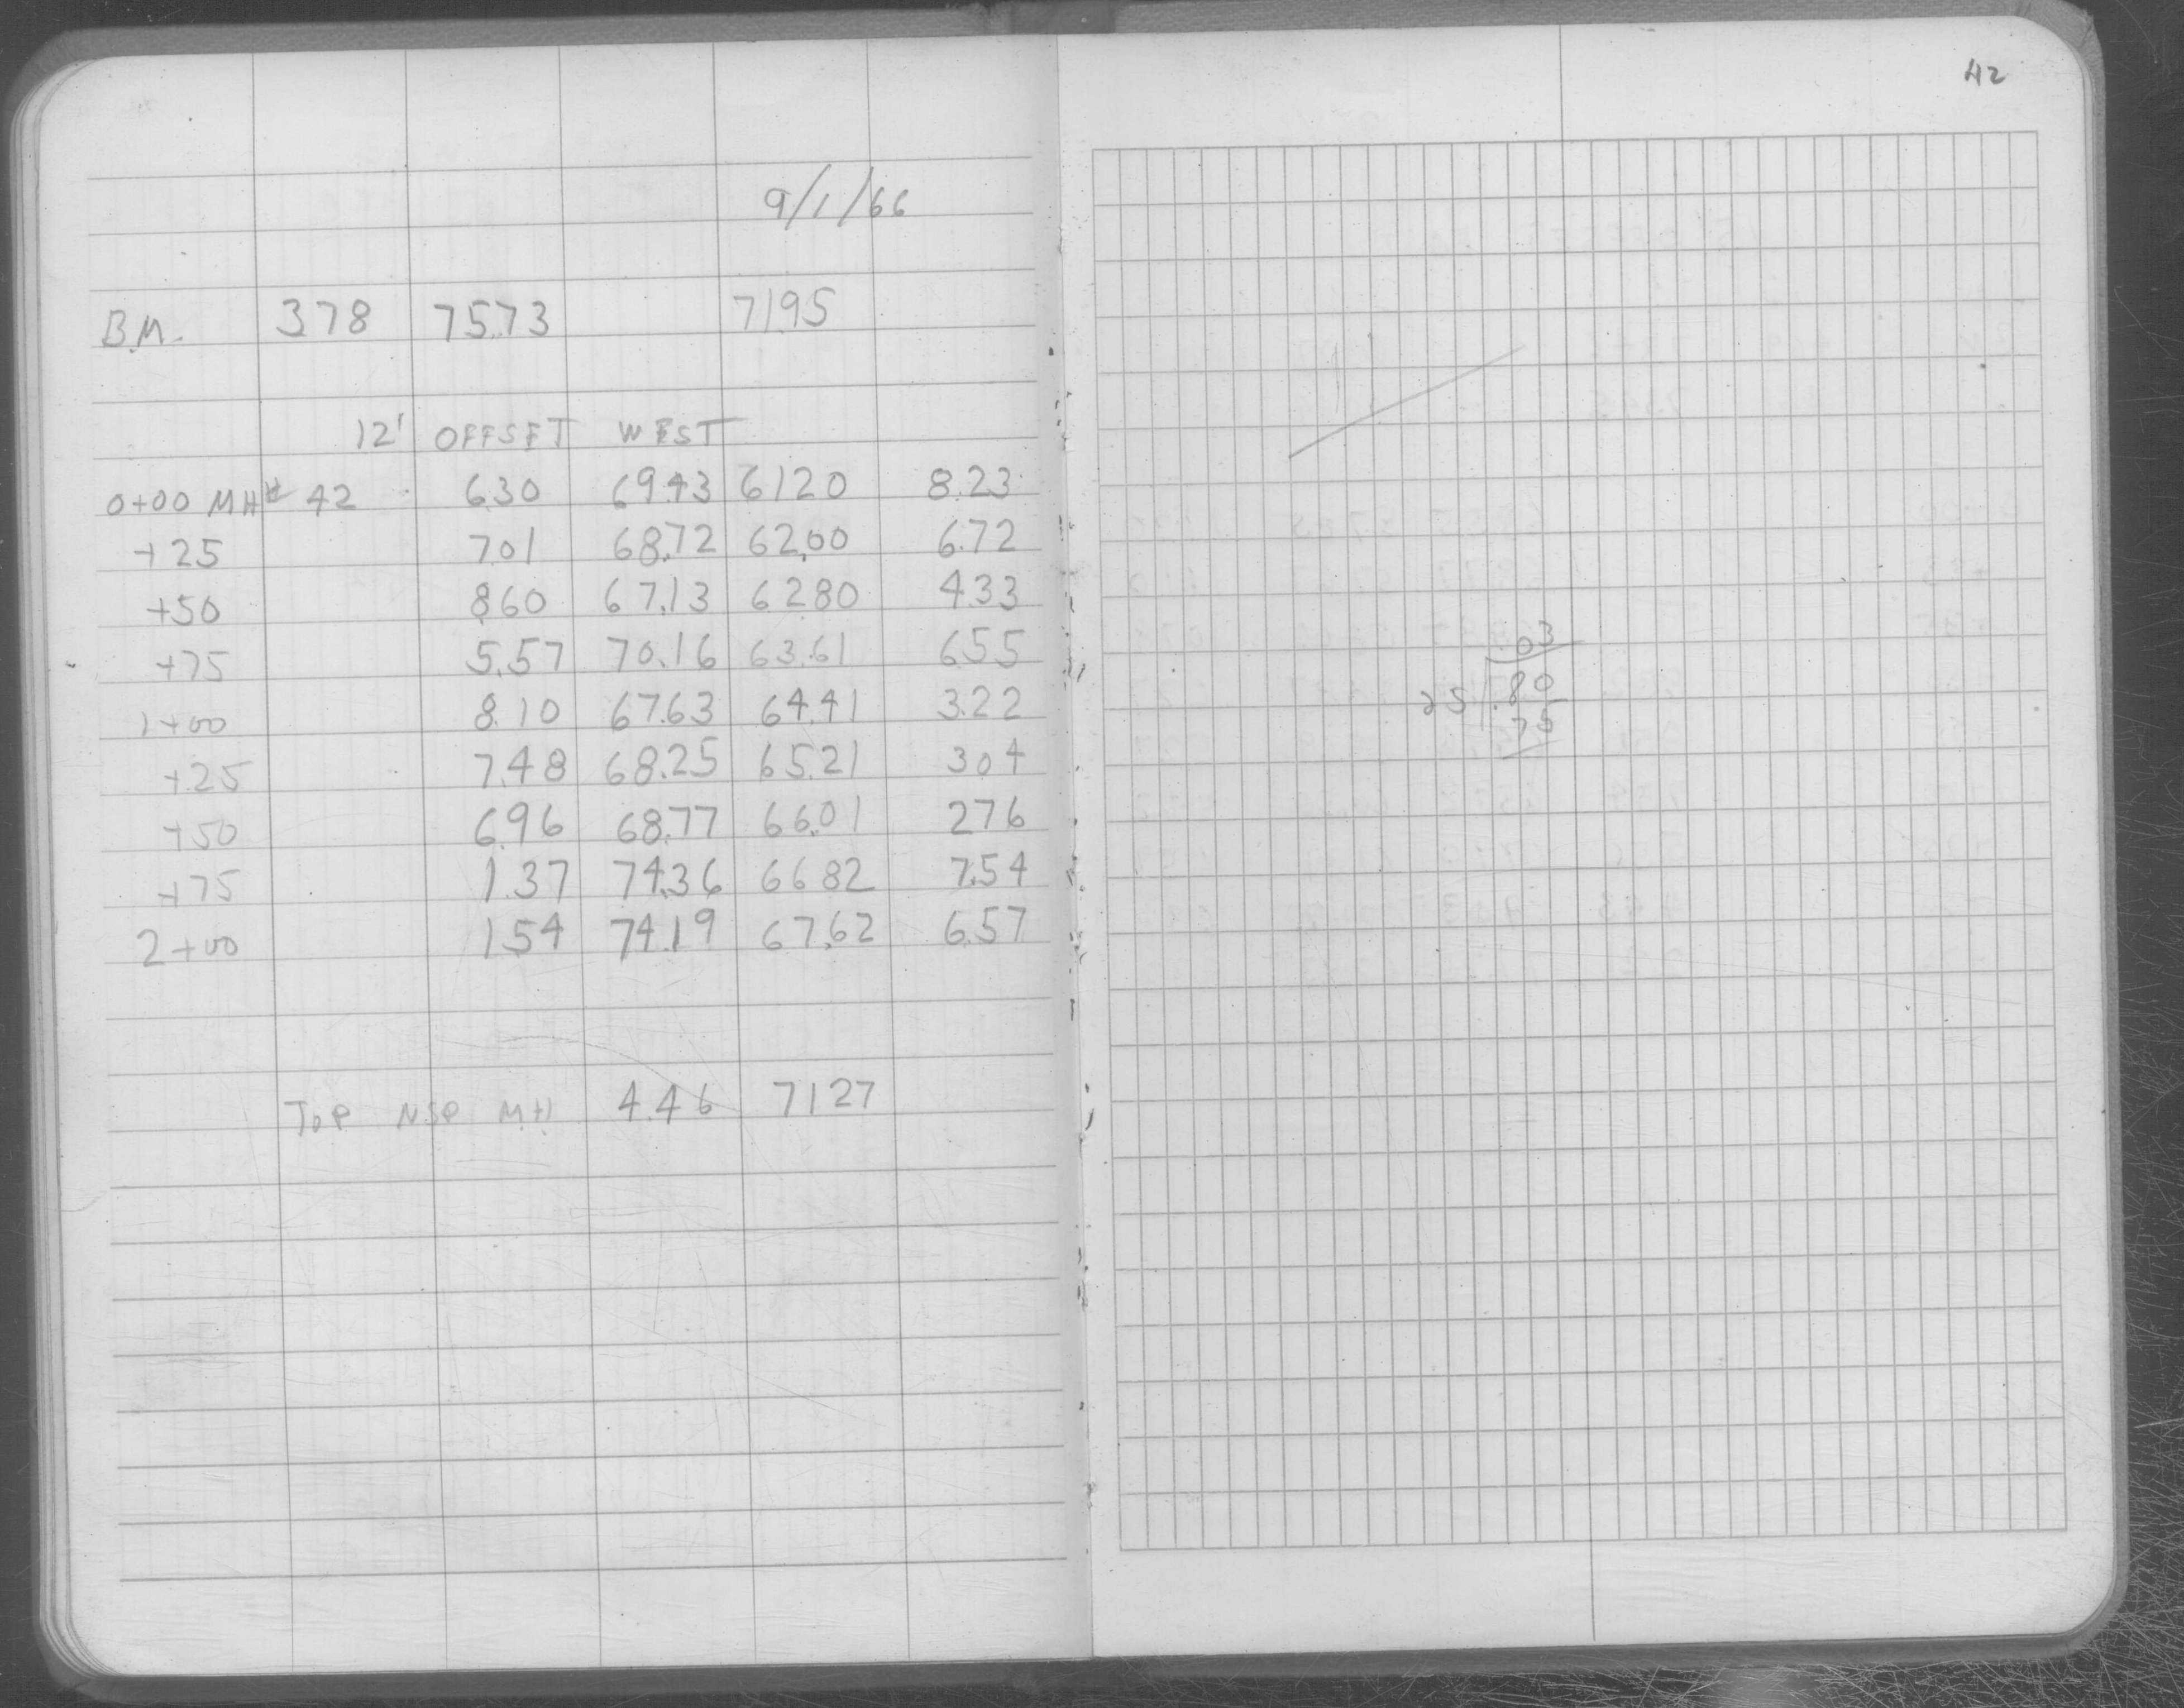 42
9/1/66
B.M. 378 75.73 71.95
12' OFFSET WEST
0+00 MH# 42 6.30 69.43 61.20 8.23
+25 7.01 68.72 62.00 6.72
+50 8.60 67.13 62.80 4.33
+75 5.57 70.16 63.61 6.55
1+00 8.10 67.63 64.41 3.22
+25 7.48 68.25 65.21 3.04
+50 6.96 68.77 66.01 2.76
+75 1.37 74.36 66.82 7.54
2+00 1.54 74.19 67.62 6.57
TOP NSP MH 4.46 71.27
.03
25 .80
75